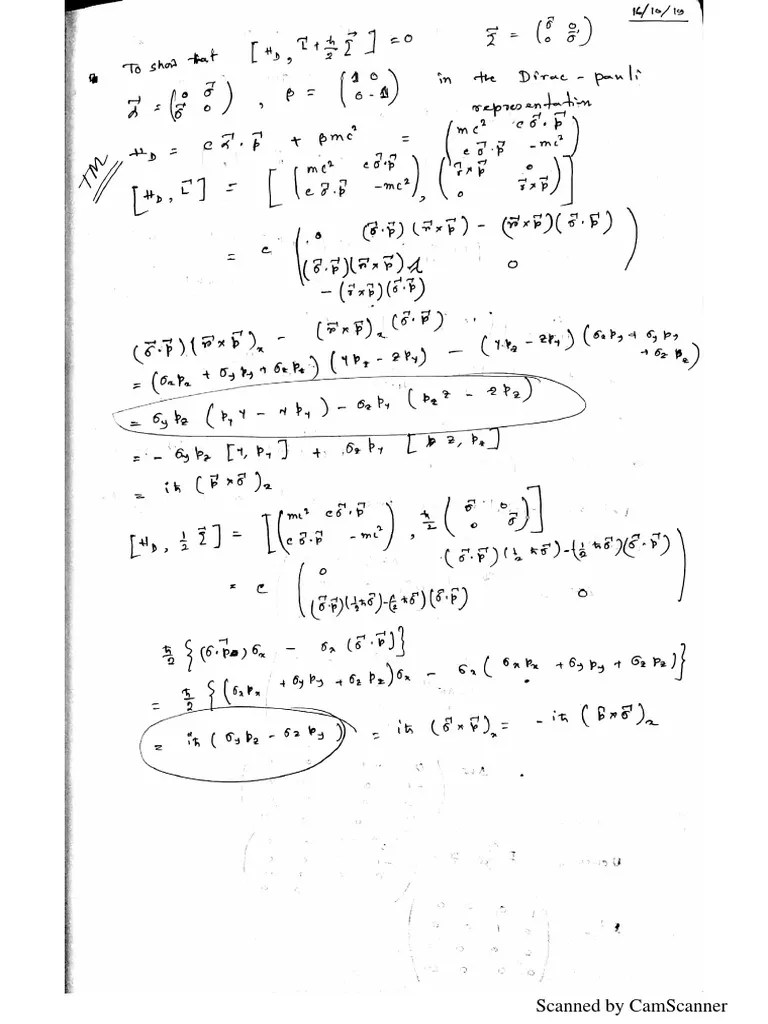 16/10/19
To show that [H_D, L⃗ + ħ/2 Σ⃗] = 0    Σ⃗ = (σ⃗ 0; 0 σ⃗)
α⃗ = (0 σ⃗; σ⃗ 0), β = (1 0; 0 -1) in the Dirac-pauli
representation
H_D = c α⃗·p⃗ + βmc² = (mc² cσ⃗·p⃗; cσ⃗·p⃗ -mc²)
TM
[H_D, L⃗] = [(mc² cσ⃗·p⃗; cσ⃗·p⃗ -mc²), (r⃗×p⃗ 0; 0 r⃗×p⃗)]
= c (0 (σ⃗·p⃗)(r⃗×p⃗) - (r⃗×p⃗)(σ⃗·p⃗); (σ⃗·p⃗)(r⃗×p⃗) - (r⃗×p⃗)(σ⃗·p⃗) 0)
(σ⃗·p⃗)(r⃗×p⃗)_x - (r⃗×p⃗)_x (σ⃗·p⃗)
= (σ_x p_x + σ_y p_y + σ_z p_z)(y p_z - z p_y) - (y p_z - z p_y)(σ_x p_x + σ_y p_y + σ_z p_z)
= σ_y p_z (p_y y - y p_y) - σ_z p_y (p_z z - z p_z)
= - σ_y p_z [y, p_y] + σ_z p_y [z, p_z]
= iħ (p⃗×σ⃗)_x
[H_D, ½ Σ⃗] = [(mc² cσ⃗·p⃗; cσ⃗·p⃗ -mc²), ħ/2 (σ⃗ 0; 0 σ⃗)]
= c (0 (σ⃗·p⃗)(½ħσ⃗) - (½ħσ⃗)(σ⃗·p⃗); (σ⃗·p⃗)(½ħσ⃗) - (½ħσ⃗)(σ⃗·p⃗) 0)
ħ/2 {(σ⃗·p⃗)σ_x - σ_x(σ⃗·p⃗)}
= ħ/2 {(σ_x p_x + σ_y p_y + σ_z p_z)σ_x - σ_x(σ_x p_x + σ_y p_y + σ_z p_z)}
= iħ (σ_y p_z - σ_z p_y) = iħ (σ⃗×p⃗)_x = -iħ (p⃗×σ⃗)_x
Scanned by CamScanner